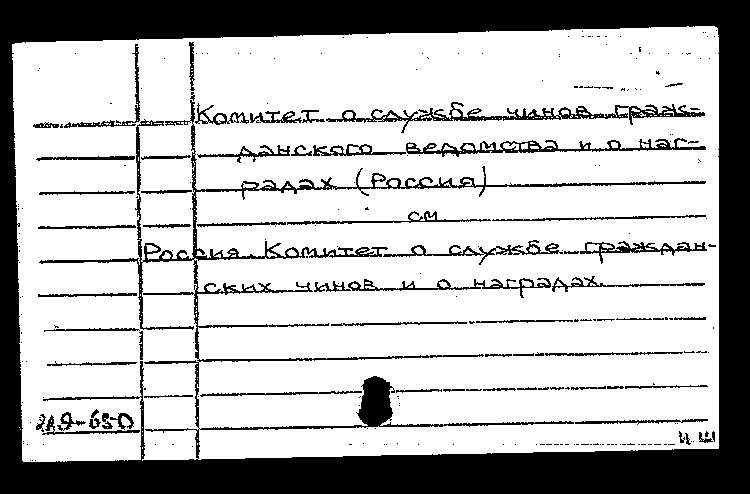 Комитет о службе чинов граж-
данского ведомства и о наг-
радах (Россия)
см
Россия. Комитет о службе граждан-
ских чинов и о наградах.
И Ш